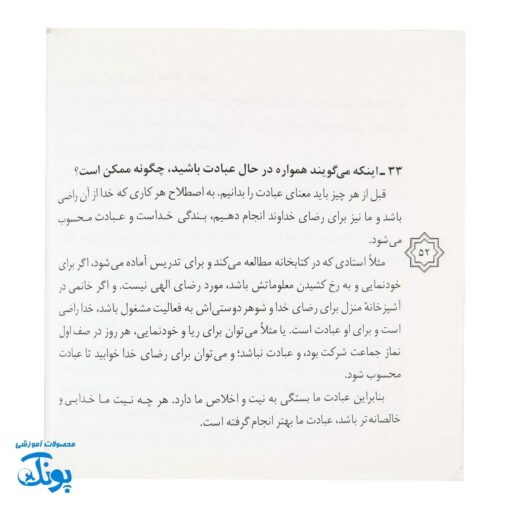 ۳۳ ـ اینکه می‌گویند همواره در حال عبادت باشید، چگونه ممکن است؟
قبل از هر چیز باید معنای عبادت را بدانیم. به اصطلاح هر کاری که خدا از آن راضی
باشد و ما نیز برای رضای خداوند انجام دهیم، بندگی خداست و عبادت محسوب
می‌شود.
۵۲
مثلاً استادی که در کتابخانه مطالعه می‌کند و برای تدریس آماده می‌شود، اگر برای
خودنمایی و به رخ کشیدن معلوماتش باشد، مورد رضای الهی نیست. و اگر خانمی در
آشپزخانهٔ منزل برای رضای خدا و شوهر دوستی‌اش به فعالیت مشغول باشد، خدا راضی
است و برای او عبادت است. یا مثلاً می‌توان برای ریا و خودنمایی، هر روز در صف اول
نماز جماعت شرکت بود، و عبادت نباشد؛ و می‌توان برای رضای خدا خوابید تا عبادت
محسوب شود.
بنابراین عبادت ما بستگی به نیت و اخلاص ما دارد. هر چه نیت ما خدایی و
خالصانه‌تر باشد، عبادت ما بهتر انجام گرفته است.
محصولات آموزشی
پونک